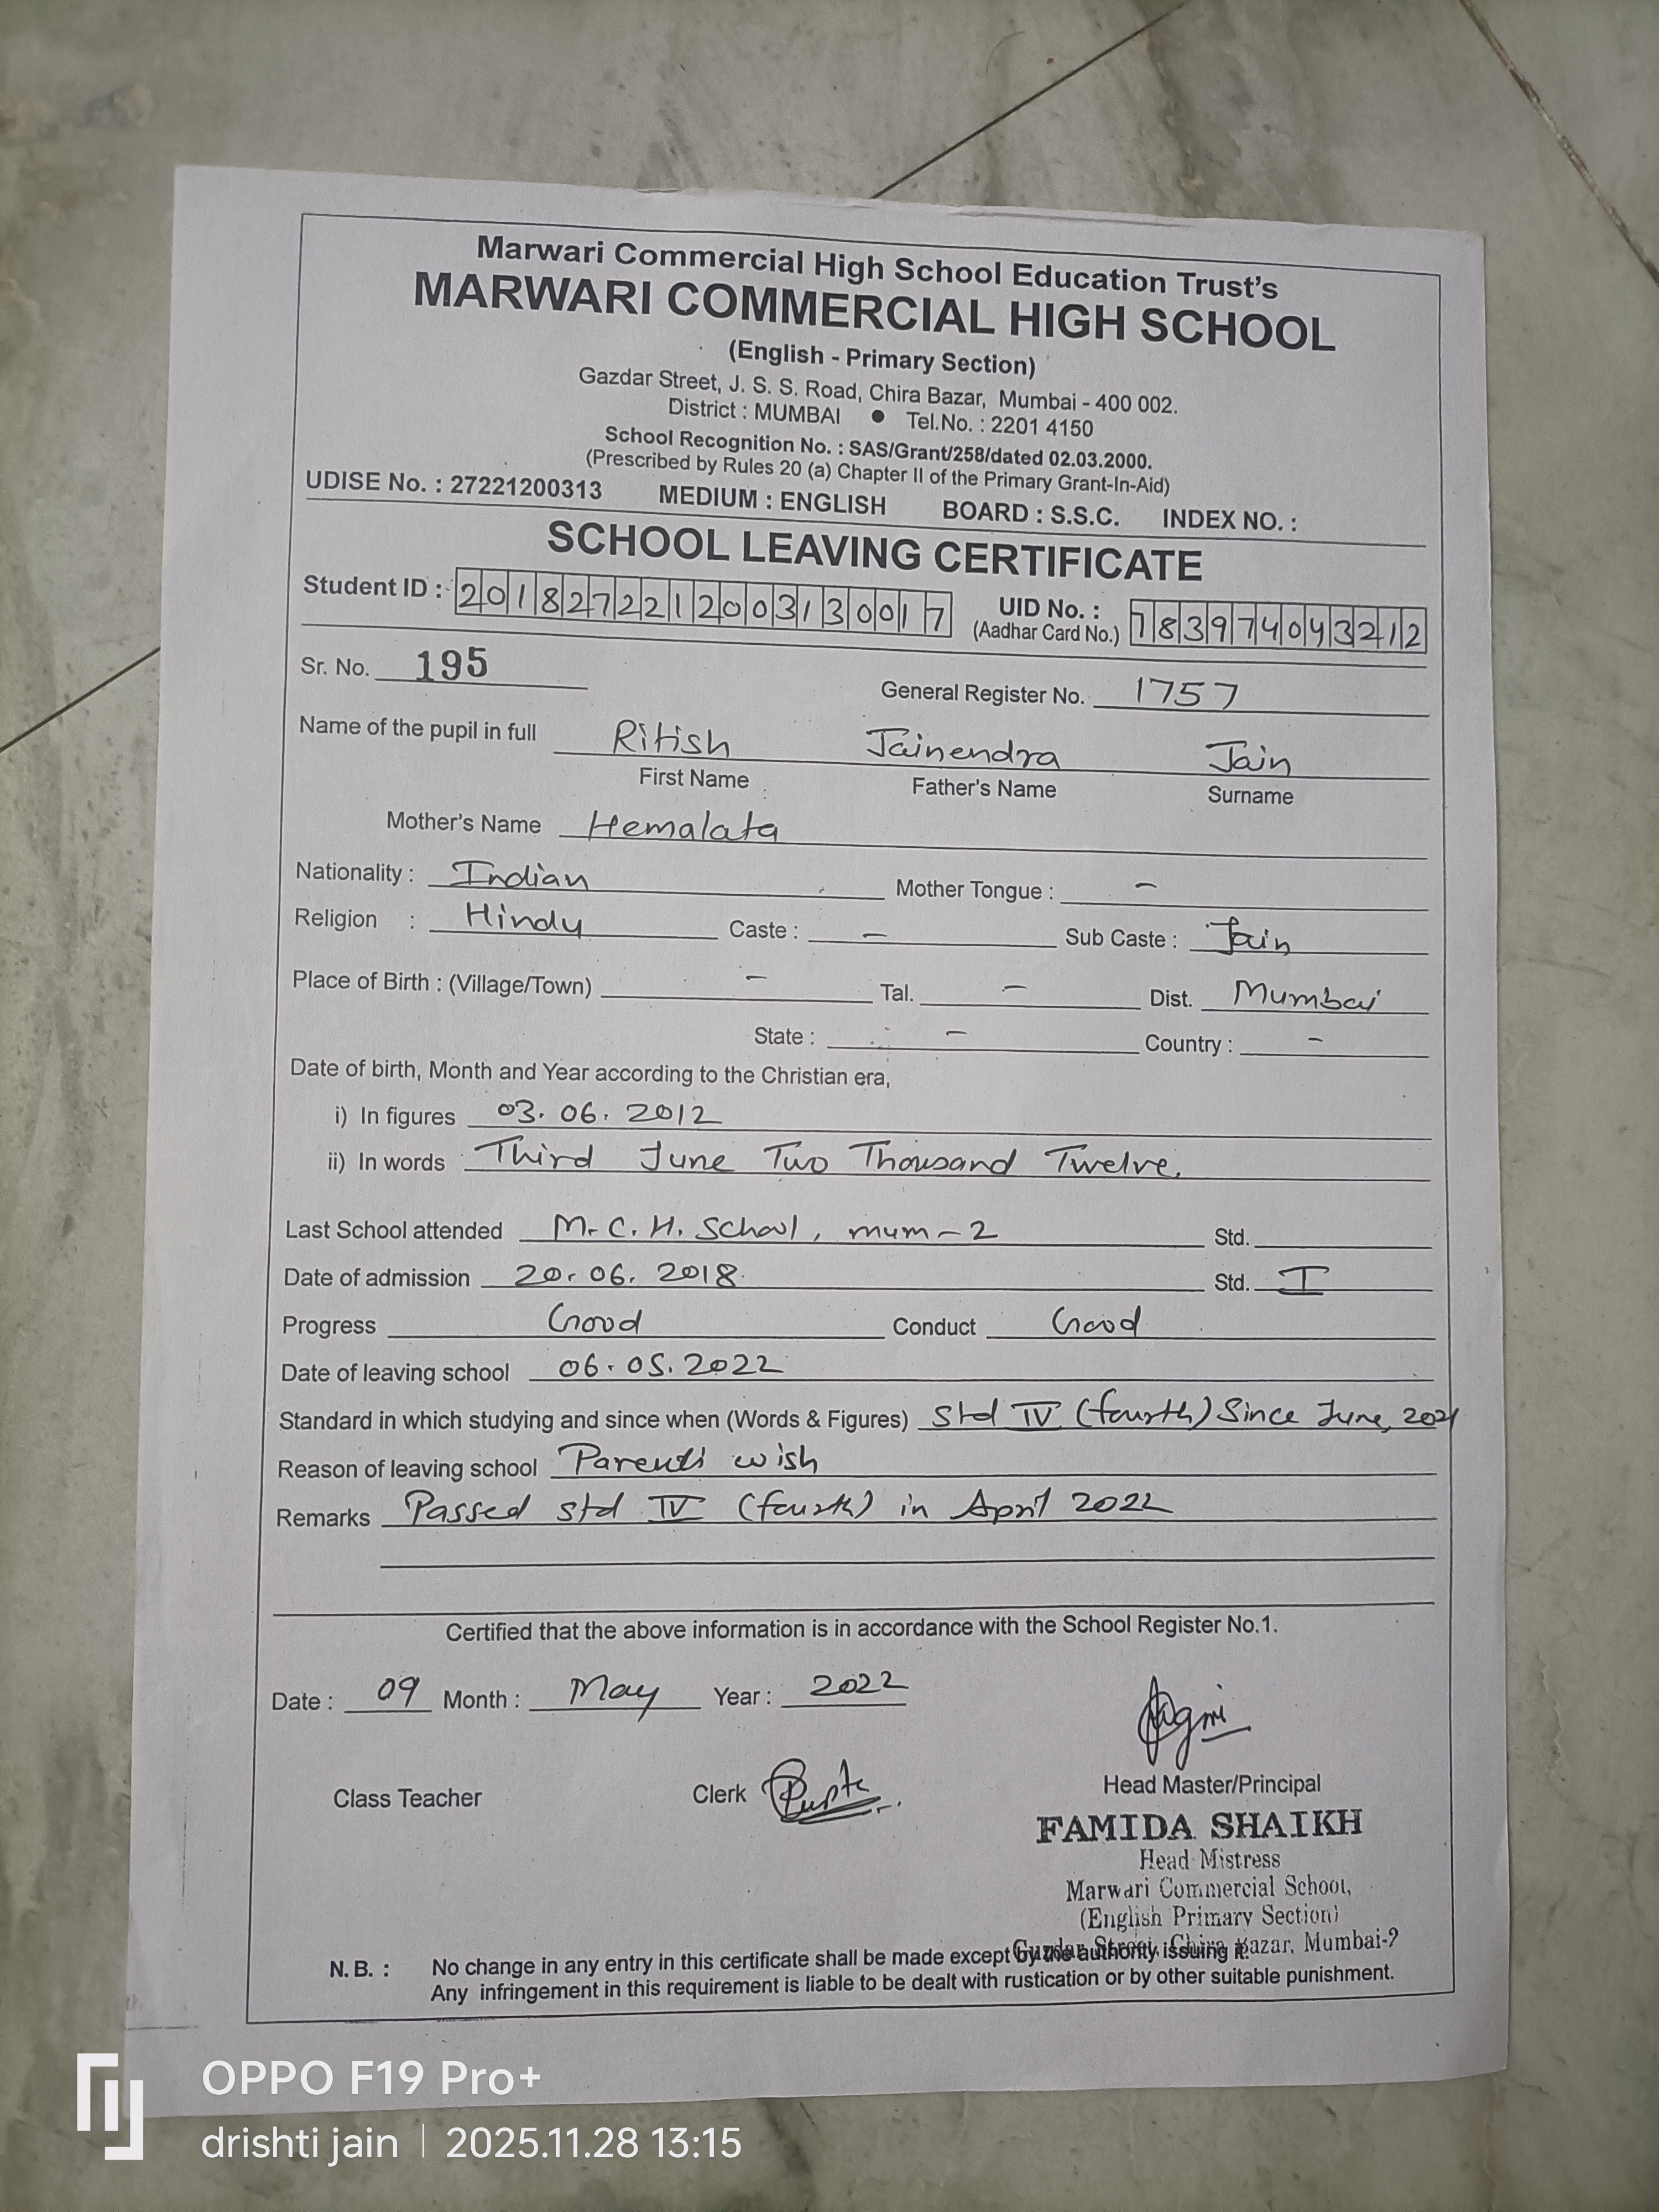 Marwari Commercial High School Education Trust's
MARWARI COMMERCIAL HIGH SCHOOL
(English - Primary Section)
Gazdar Street, J. S. S. Road, Chira Bazar, Mumbai - 400 002.
District : MUMBAI ● Tel.No. : 2201 4150
School Recognition No. : SAS/Grant/258/dated 02.03.2000.
(Prescribed by Rules 20 (a) Chapter II of the Primary Grant-In-Aid)
UDISE No. : 27221200313 MEDIUM : ENGLISH BOARD : S.S.C. INDEX NO. :
SCHOOL LEAVING CERTIFICATE
Student ID : 2018272212003130017 UID No. : 783974043212
(Aadhar Card No.)
Sr. No. 195 General Register No. 1757
Name of the pupil in full Ritish Jainendra Jain
First Name Father's Name Surname
Mother's Name Hemalata
Nationality : Indian Mother Tongue : -
Religion : Hindu Caste : - Sub Caste : Jain
Place of Birth : (Village/Town) - Tal. - Dist. Mumbai
State : - Country : -
Date of birth, Month and Year according to the Christian era,
i) In figures 03. 06. 2012
ii) In words Third June Two Thousand Twelve.
Last School attended M. C. H. School, mum - 2 Std.
Date of admission 20. 06. 2018. Std. I
Progress Good Conduct Good
Date of leaving school 06. 05. 2022
Standard in which studying and since when (Words & Figures) Std IV (fourth) Since June, 2021
Reason of leaving school Parents' wish
Remarks Passed std IV (fourth) in April 2022
Certified that the above information is in accordance with the School Register No.1.
Date : 09 Month : May Year : 2022
Class Teacher Clerk Head Master/Principal
FAMIDA SHAIKH
Head Mistress
Marwari Commercial School,
(English Primary Section)
Gazdar Street, Chira Bazar, Mumbai-2
N. B. : No change in any entry in this certificate shall be made except by the authority issuing it.
Any infringement in this requirement is liable to be dealt with rustication or by other suitable punishment.
OPPO F19 Pro+
drishti jain | 2025.11.28 13:15